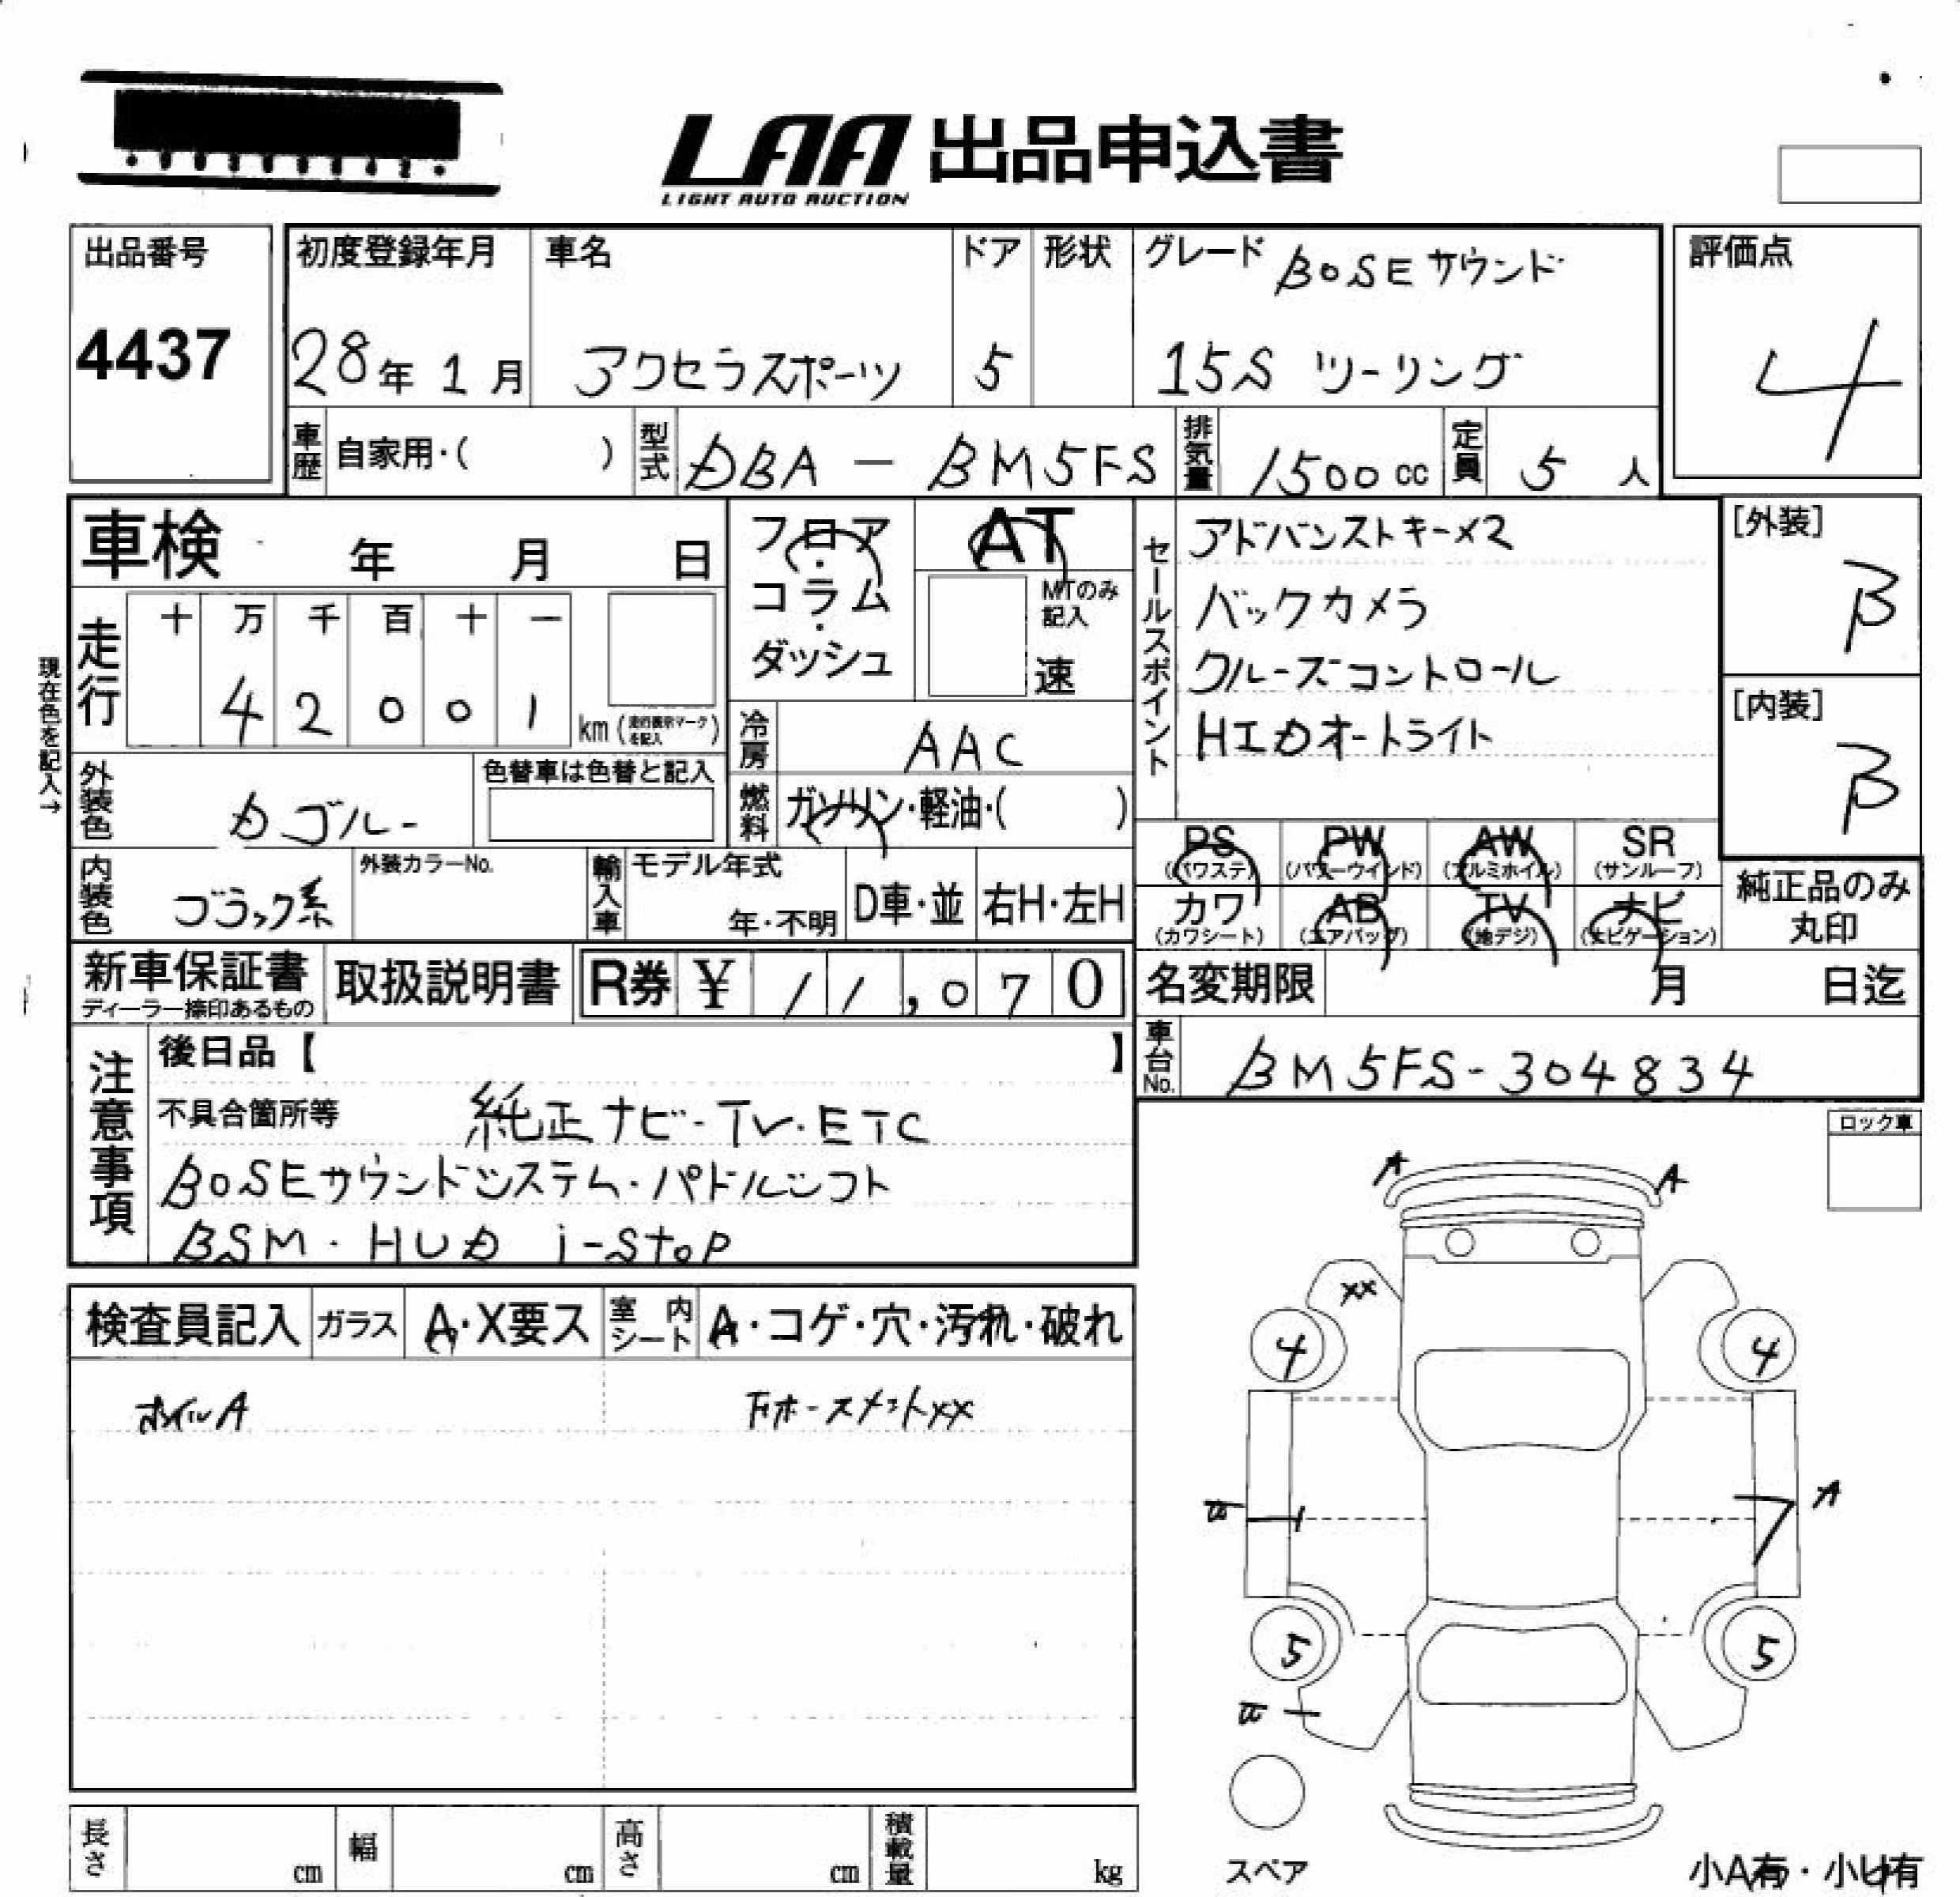 LAA 出品申込書
LIGHT AUTO AUCTION
出品番号
4437
初度登録年月
28年 1月
車名
アクセラスポーツ
ドア
5
形状
グレード BOSEサウンド
15S ツーリング
評価点
4
車歴 自家用・( )
型式 DBA - BM5FS
排気量 1500cc
定員 5 人
車検 年 月 日
フロア・コラム・ダッシュ
AT
MTのみ記入
速
現在色を記入→
走行
十 万 千 百 十 一
4 2 0 0 1
km (走行表示マークを記入)
冷房 AAC
燃料 ガソリン・軽油・( )
外装色 Dブルー
色替車は色替と記入
内装色 ブラック系
外装カラーNo.
輸入車 モデル年式
年・不明
D車・並 右H・左H
セールスポイント
アドバンストキー×2
バックカメラ
クルーズコントロール
HIDオートライト
[外装]
B
[内装]
B
PS (パワステ)
PW (パワーウインド)
AW (アルミホイル)
SR (サンルーフ)
カワ (カワシート)
AB (エアバッグ)
TV (地デジ)
ナビ (ナビゲーション)
純正品のみ
丸印
新車保証書
ディーラー捺印あるもの
取扱説明書
R券 ¥ 11,070
名変期限 月 日迄
車台No. BM5FS-304834
注意事項
後日品【 】
不具合箇所等 純正ナビ・TV・ETC
BOSEサウンドシステム・パドルシフト
BSM・HUD i-stop
ロック車
検査員記入
ガラス A・X要ス
室内シート A・コゲ・穴・汚れ・破れ
ホイルA
下ホースメントxx
A
A
xx
4
4
A
5
5
スペア
小A有・小U有
長さ cm
幅 cm
高さ cm
積載量 kg